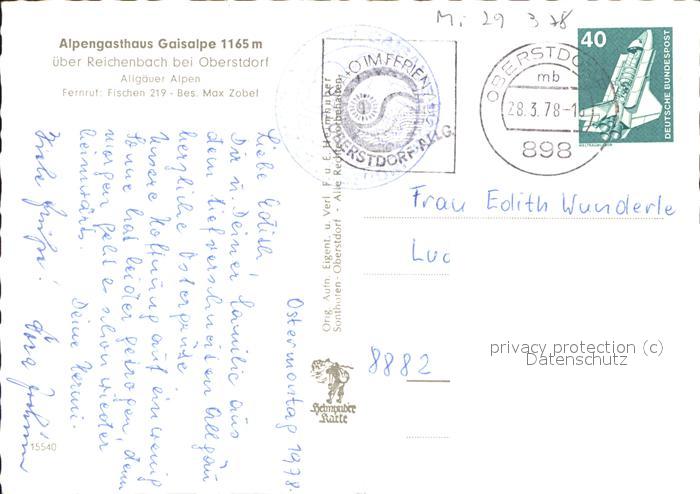 Mi 29 3 78
Alpengasthaus Gaisalpe 1165 m
über Reichenbach bei Oberstdorf
Allgäuer Alpen
Fernruf: Fischen 219 - Bes. Max Zobel
Ostermontag 1978.
Liebe Edith!
Dir u. Deiner Familie aus
dem tiefverschneiten Allgäu
herzliche Ostergrüße
Unsere Hoffnung auf ein wenig
Sonne hat leider getrogen, denn
morgen geht es schon wieder
heimwärts.
Deine Hermi.
Viele Grüße!
15540
Orig. Aufn. Eigent. u. Verl. F. u. E. Heimhuber
Sonthofen-Oberstdorf - Alle Rechte vorbehalten
Heimhuber
Karte
IM FERIEN
OBERSTDORF-ALLG.
OBERSTDO
mb
28.3.78-1
898
40
DEUTSCHE BUNDESPOST
WELTRAUMLABOR
Frau Edith Wunderle
Luc
8882
privacy protection (c)
Datenschutz